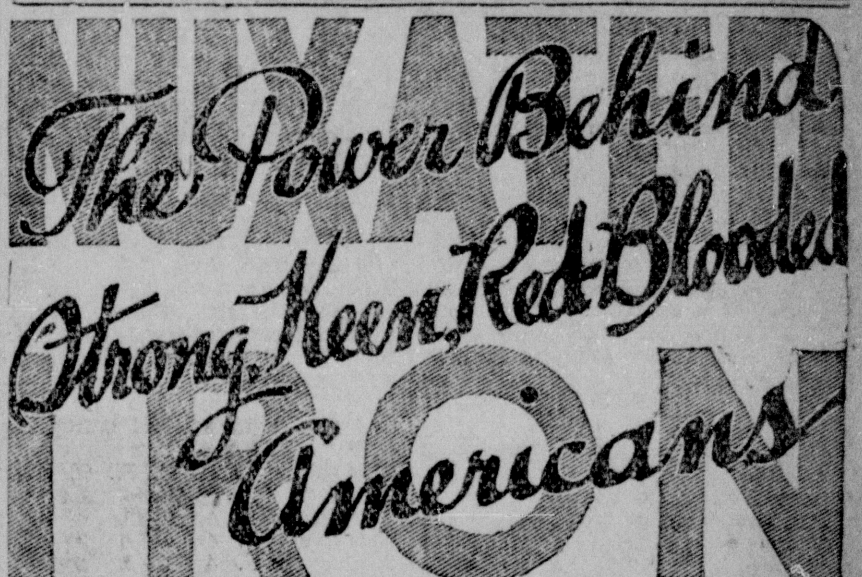 NUXATED
The Power Behind
Strong, Keen, Red-Blooded
IRON
Americans